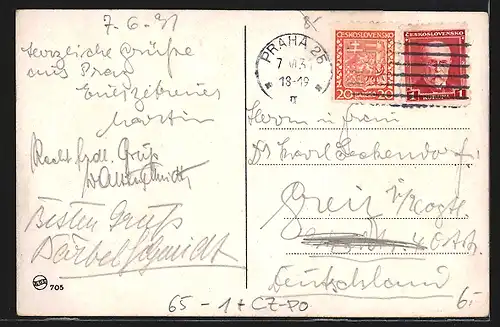 7-6-31
Herzliche Grüße
aus Prag
Martin
Recht frdl. Gruß
Besten Gruß
Bärbel Schmidt
705
PRAHA 25
7 VI 31
18-19
ČESKOSLOVENSKO
20 20
ČESKOSLOVENSKO
1 1
Herrn u. Frau
Dr Karl
Greiz i/Vogtl
Deutschland
65-1+CZ-PO
6.-